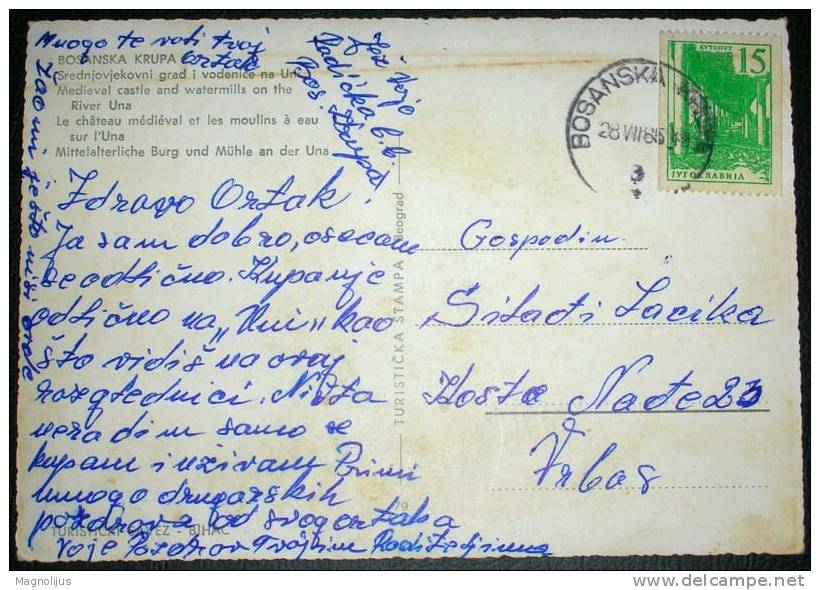 Mnogo te voli tvoj
Ortak
BOSANSKA KRUPA
Srednjovjekovni grad i vodenice na Uni
Medieval castle and watermills on the
River Una
Le château médiéval et les moulins à eau
sur l'Una
Mittelalterliche Burg und Mühle an der Una
Jež Voje
Radićka b.b
Bos. Krupa
Žao mi je što nisi ovde
Zdravo Ortak!
Ja sam dobro, osećam
se odlično. Kupanje
odlično na „Uni" kao
što vidiš na ovoj
razglednici. Ništa
neradim samo se
kupam i uživam Primi
mnogo drugarskih
pozdrava od svog ortaka
Voje Pozdrav Tvojim Roditeljima
TURISTIČKI SAVEZ - BIHAĆ
TURISTIČKA ŠTAMPA - Beograd
79
BOSANSKA KRUPA
28 VII 65 19
АУТОПУТ
15
ЈУГОСЛАВИЈА
Gospodin
Silađi Lacika
Koste Nađe 23
Vrbas
Magnolijus
delcampe.net